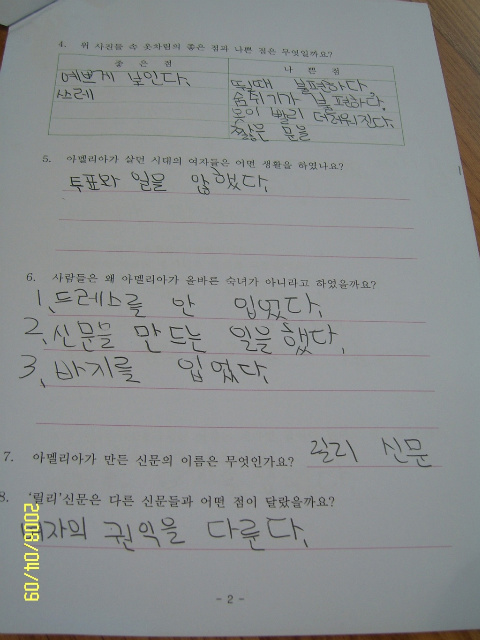 4. 위 사진들 속 옷차림의 좋은 점과 나쁜 점은 무엇일까요?
좋 은 점
나 쁜 점
예쁘게 보인다.
쓰레
뛸때 불편하다.
숨쉬기가 불편하다.
옷이 빨리 더러워진다.
짧은 문을
5. 아멜리아가 살던 시대의 여자들은 어떤 생활을 하였나요?
투표와 일을 않했다.
6. 사람들은 왜 아멜리아가 올바른 숙녀가 아니라고 하였을까요?
1. 드레스를 안 입었다.
2. 신문을 만드는 일을 했다.
3. 바지를 입었다.
7. 아멜리아가 만든 신문의 이름은 무엇인가요? 릴리 신문
8. '릴리'신문은 다른 신문들과 어떤 점이 달랐을까요?
여자의 권익을 다룬다.
2008/04/09
- 2 -